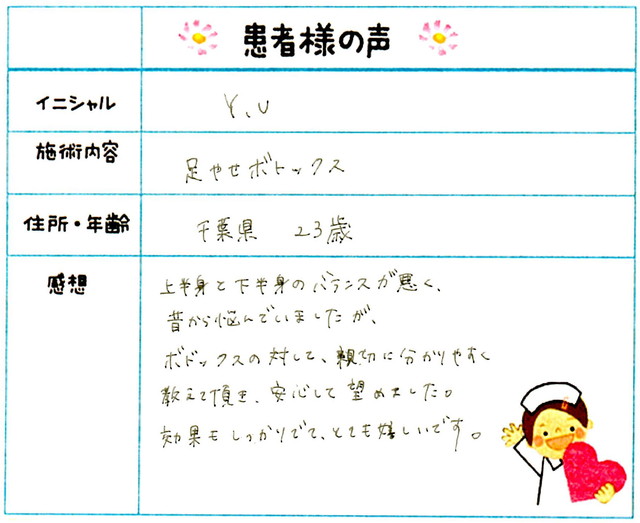 患者様の声
イニシャル Y.U
施術内容 足やせボトックス
住所・年齢 千葉県 23歳
感想
上半身と下半身のバランスが悪く、
昔から悩んでいましたが、
ボドックスの対して、親切に分かりやすく
教えて頂き、安心して望めました。
効果もしっかりでて、とても嬉しいです。